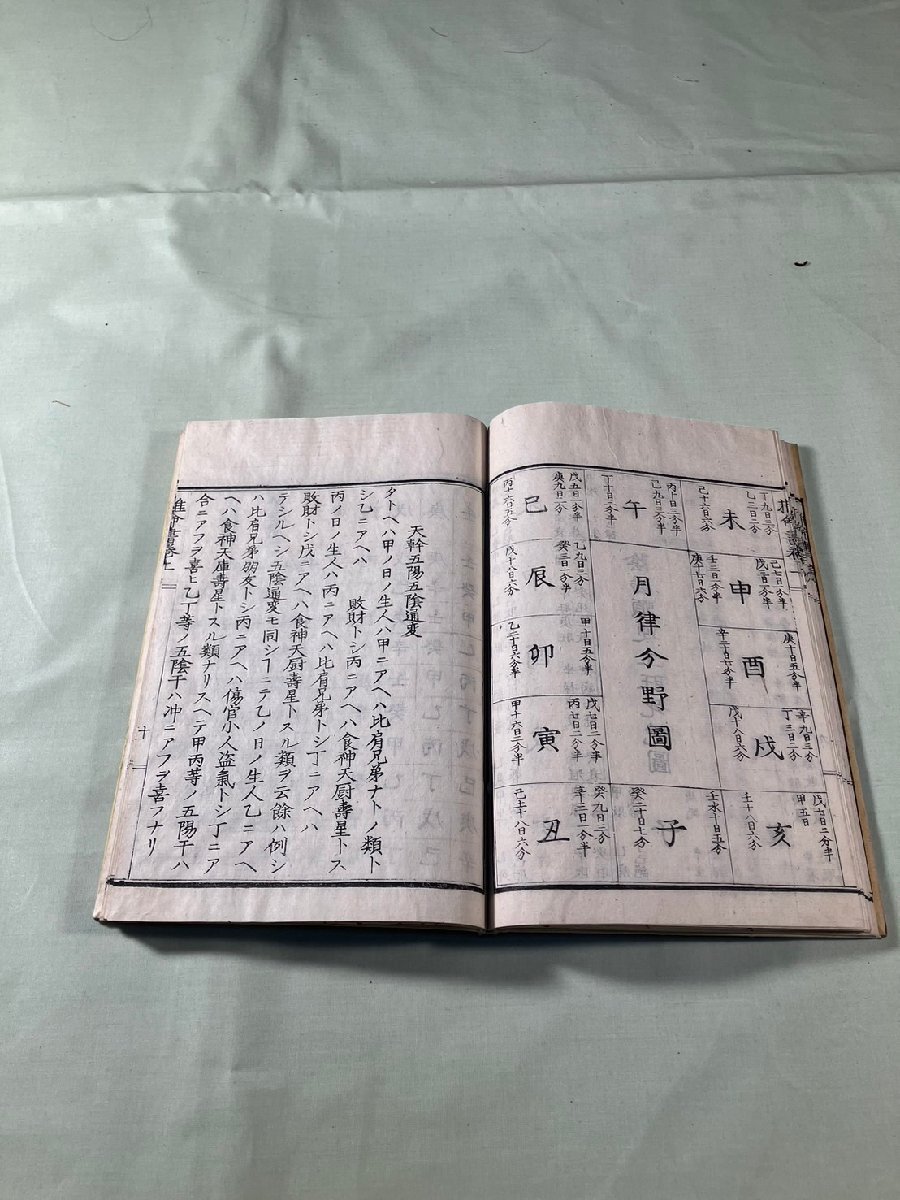 月律分野圖
未
丁九日三分
乙三日二分
己十六日六分
申
己七日二分半
戊三日一分半
壬三日二分半
庚十七日六分
酉
庚十日五分半
辛二十日六分半
戌
辛九日三分
丁三日二分
戊十八日六分
亥
戊七日二分半
甲五日
壬十八日六分
子
壬水十日五分
癸二十日七分
丑
癸九日三分
辛三日一分半
己土十八日六分
寅
戊七日二分半
丙七日二分半
甲十六日三分半
卯
甲十日五分半
乙二十日六分半
辰
乙九日三分
癸三日一分半
戊十八日六分
巳
戊五日一分半
庚九日二分
丙十六日五分
午
丙十日二分半
己九日三分半
丁十日三分半
天幹五陽五陰通変
タトヘハ甲ノ日ノ生人ハ甲ニアヘハ比肩兄弟ナトノ類ト
シ乙ニアヘハ 敗財トシ丙ニアヘハ食神天厨壽星トス
丙ノ日ノ生人ハ丙ニアヘハ比肩兄弟トシ丁ニアヘハ
敗財トシ戊ニアヘハ食神天厨壽星トスル類ヲ云餘ハ例シ
テシルヘシ五陰通変モ同シーニテ乙ノ日ノ生人乙ニアヘ
ハ比肩兄弟朋友トシ丙ニアヘハ傷官小人盗氣トシ丁ニア
ヘハ食神天厨壽星トスル類ナリスヘテ甲丙等ノ五陽干ハ
合ニアフヲ喜ヒ乙丁等ノ五陰干ハ冲ニアフヲ喜フナリ
推命書巻上 十